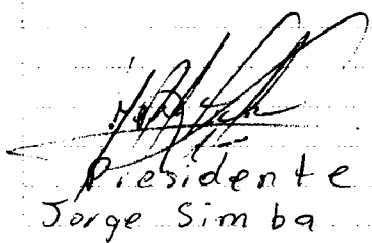 Presidente
Jorge Simba